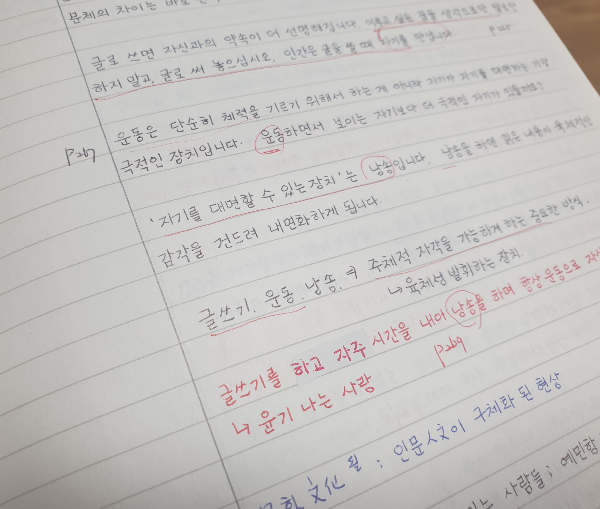 문제의 차이는 바로
글로 쓰면 자신과의 약속이 더 선명해집니다. 이루고 싶은 것을 생각으로만
하지 말고, 글로 써 놓으십시오. 인간은 글을 쓸 때 자기를 만납니다
운동은 단순히 체력을 기르기 위해서 하는 게 아니라 자기가 자기를 대면하는 가장
p267
극적인 장치입니다. 운동하면서 보이는 자기보다 더 극적인 자기가 있을까요?
'자기를 대면할 수 있는 장치'는 낭송입니다. 낭송을 하면 읽은 내용이 육체적인
감각을 건드려 내면화하게 됩니다.
글쓰기. 운동. 낭송. → 주체적 자각을 가능하게 하는 중요한 방식.
↳ 육체성 발휘하는 장치.
글쓰기를 하고 자주 시간을 내어 낭송을 하며 항상 운동으로
p269
↳ 윤기 나는 사람
; 인문人文이 구체화 된 현상
사람들; 예민함